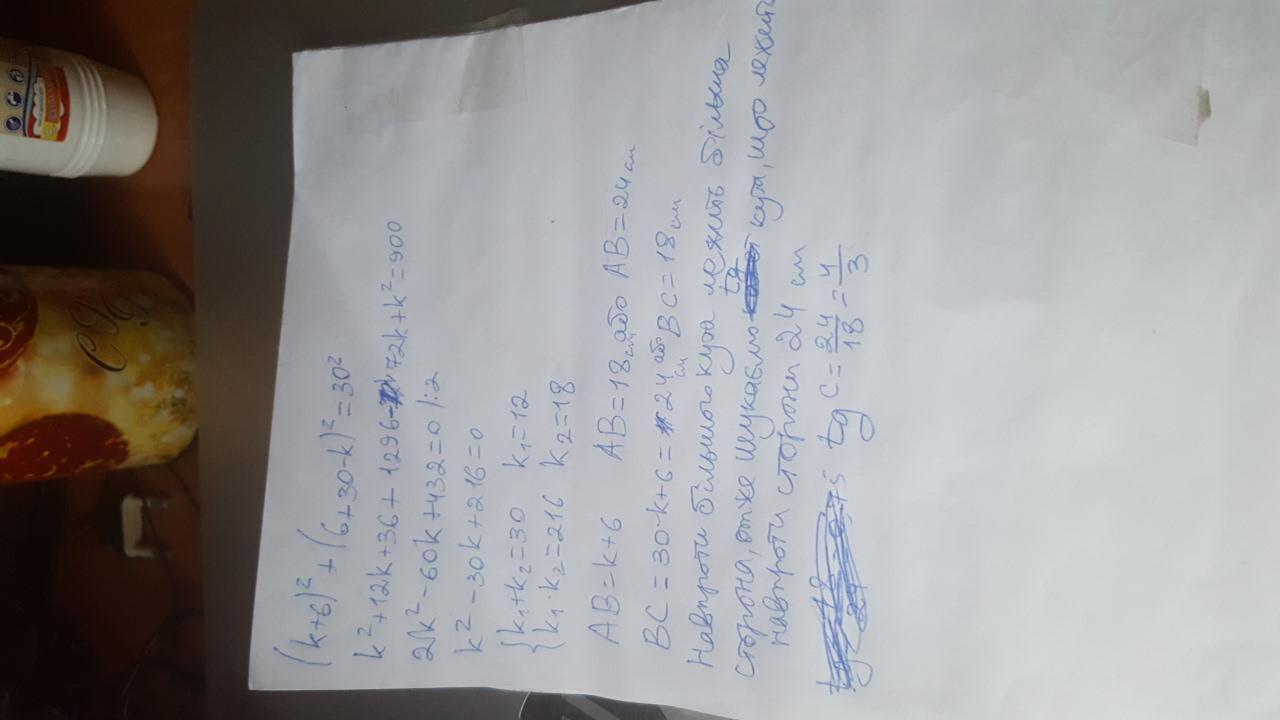 (k+6)²+(6+30-k)²=30²
k²+12k+36+1296-72k+k²=900
2k²-60k+432=0 |:2
k²-30k+216=0
{k₁+k₂=30 k₁=12
{k₁·k₂=216 k₂=18
AB=k+6 AB=18см або AB=24см
BC=30-k+6=24см або BC=18см
Навпроти більшого кута лежить більша
сторона, отже шукаємо tg кута, що лежить
навпроти сторони 24 см
tg C=24/18=4/3